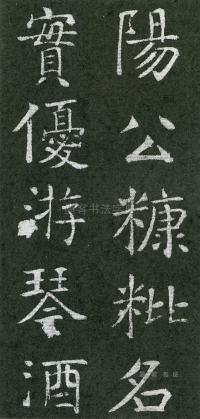 陽公糠粃名
實優游琴酒